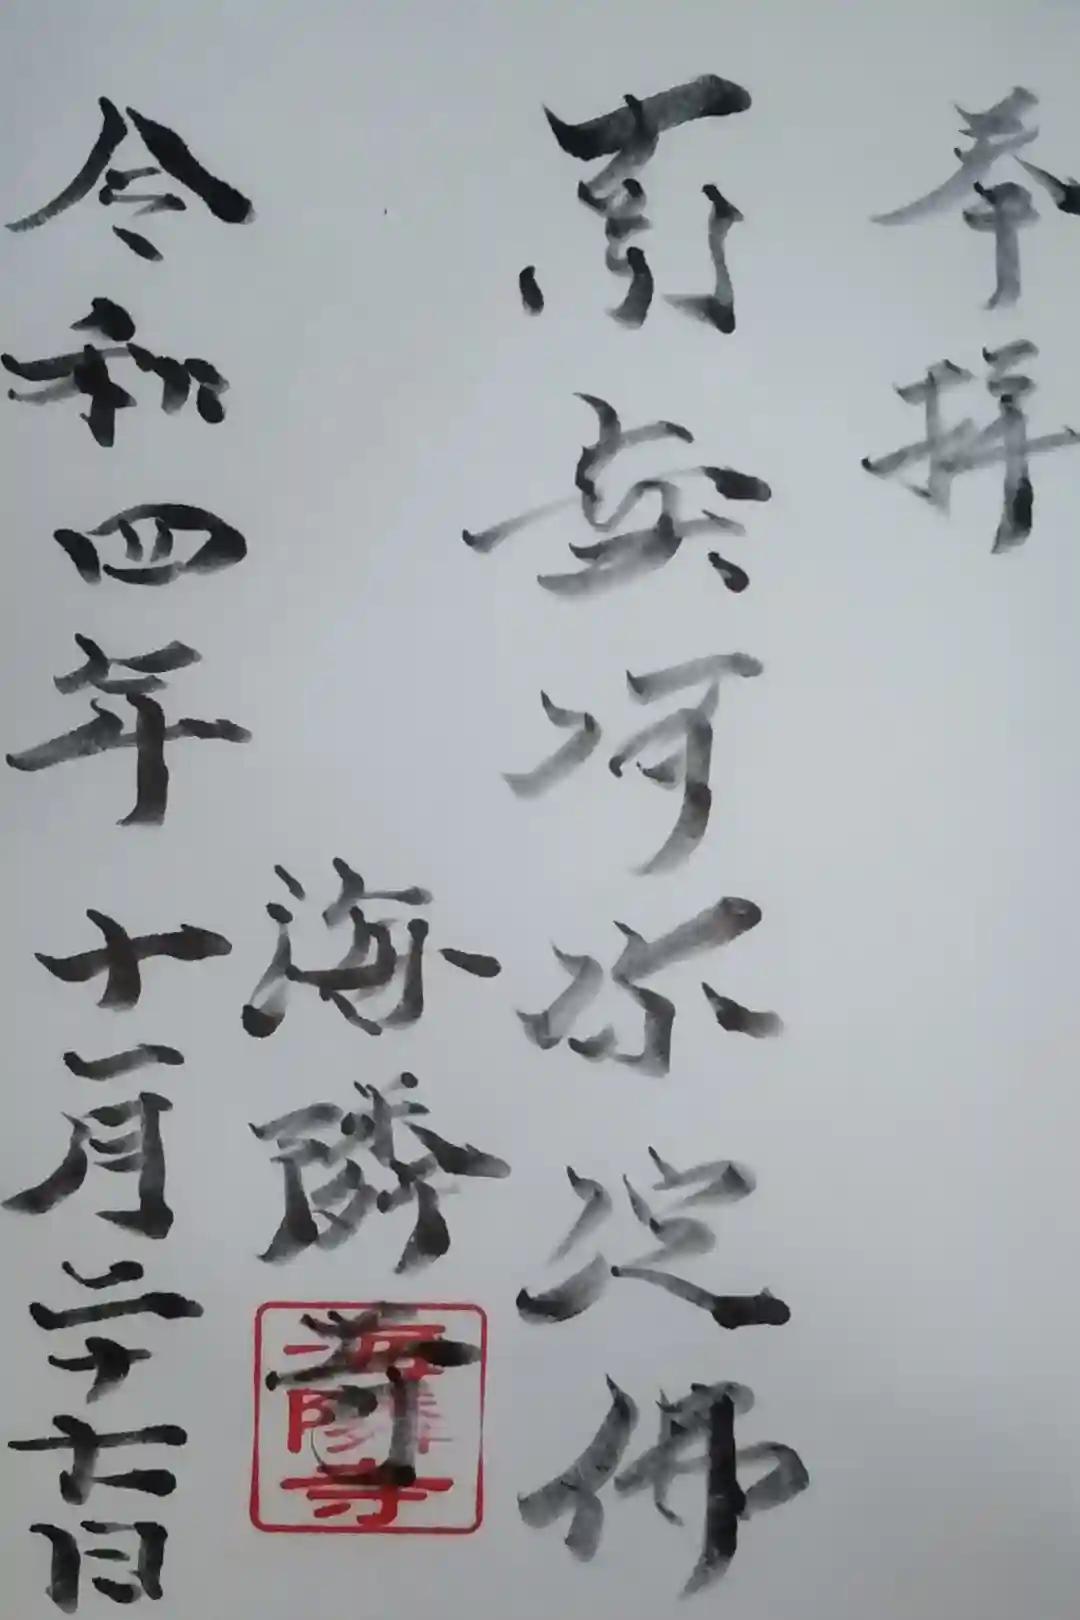 奉拝
南無阿弥陀佛
海隣寺
海隣寺
令和四年十一月二十六日